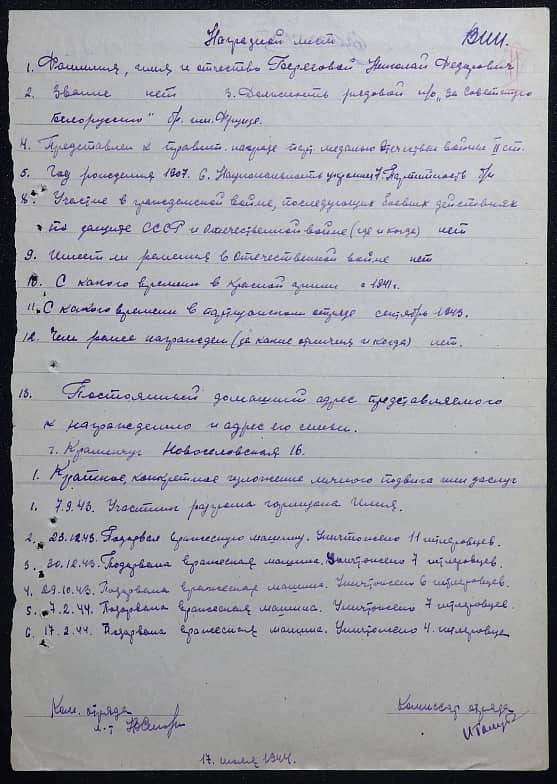 Наградной лист
1. Фамилия, имя и отчество Береговой Николай Федорович
2. Звание нет 3. Должность рядовой п/о „За Советскую
Белоруссию" бр. им. Фрунзе.
4. Представлен к правит. награде парт. медалью Отечествен войны II ст.
5. Год рождения 1907. 6. Национальность украинец 7. Партийность б/п
8. Участие в гражданской войне, последующих боевых действиях
по защите СССР и отечественной войне (где и когда) нет
9. Имеет ли ранения в отечественной войне нет
10. С какого времени в Красной армии с 1941 г.
11. С какого времени в партизанском отряде сентябрь 1943.
12. Чем ранее награжден (за какие отличия и когда) нет.
13. Постоянный домашний адрес представляемого
к награждению и адрес его семьи.
г. Кременчуг Новоселовская 16.
1. Краткое, конкретное изложение личного подвига или заслуг
1. 7.9.43. Участник разгрома гарнизона Илия.
2. 23.12.43. Подорвал вражескую машину. Уничтожено 11 гитлеровцев.
3. 30.12.43. Подорвана вражеская машина. Уничтожено 7 гитлеровцев.
4. 29.10.43. Подорвана вражеская машина. Уничтожено 6 гитлеровцев.
5. 7.2.44. Подорвана вражеская машина. Уничтожено 7 гитлеровцев.
6. 17.2.44. Подорвана вражеская машина. Уничтожено 4. гитлеровца
Ком. отряда Комиссар отряда
л-т
17 июля 1944.